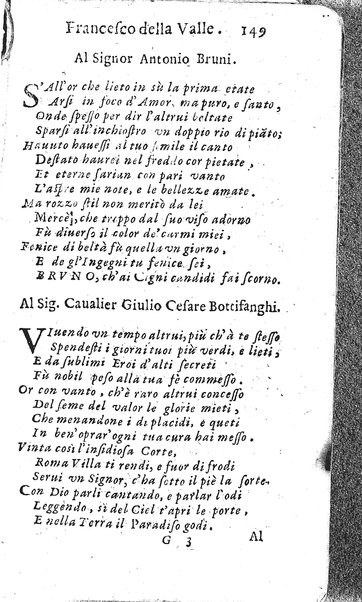 Francesco della Valle. 149
Al Signor Antonio Bruni.
S'All'or che lieto in sù la prima etate
Arsi in foco d'Amor, ma puro, e santo,
Onde spesso per dir l'altrui beltate
Sparsi all'inchiostro vn doppio rio di piãto;
Hauuto hauessi al tuo simile il canto
Destato haurei nel freddo cor pietate,
Et eterne sarian con pari vanto
L'aspre mie note, e le bellezze amate.
Ma rozzo stil non meritò da lei
Mercè; che troppo dal suo viso adorno
Fù diuerso il color de' carmi miei,
Fenice di beltà fù quella vn giorno,
E de gl'Ingegni tu fenice sei,
BRVNO, ch'ai Cigni candidi fai scorno.
Al Sig. Caualier Giulio Cesare Bottifanghi.
VIuendo vn tempo altrui, più ch'à te stesso
Spendesti i giorni tuoi più verdi, e lieti,
E da sublimi Eroi d'alti secreti
Fù nobil peso alla tua fè commesso.
Or con vanto, ch'è raro altrui concesso
Del seme del valor le glorie mieti,
Che menandone i dì placidi, e queti
In ben'oprar'ogni tua cura hai messo.
Vinta così l'insidiosa Corte,
Roma Villa ti rendi, e fuor di frodi
Serui vn Signor, c'ha sotto il piè la sorte.
Con Dio parli cantando, e parlar l'odi
Leggendo, sì del Ciel t'apri le porte,
E nella Terra il Paradiso godi.
G 3 Al